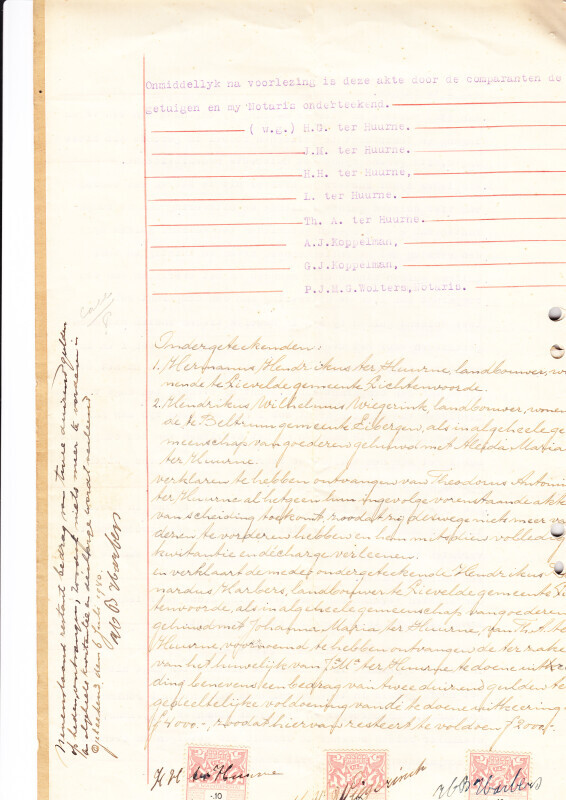 Onmiddellyk na voorlezing is deze akte door de comparanten de
getuigen en my Notaris onderteekend.
( w.g.) H.G. ter Huurne.
J.M. ter Huurne.
H.H. ter Huurne,
L. ter Huurne.
Th. A. ter Huurne.
A.J.Koppelman,
G.J.Koppelman,
P.J.M.G.Wolters, Notaris.
Ondergeteekenden:
1. Hermannus Hendrikus ter Huurne, landbouwer, wo
nende te Lievelde gemeente Lichtenvoorde.
2. Hendrikus Wilhelmus Wiegerink, landbouwer, wonen
de te Beltrum gemeente Eibergen, als in algeheele ge
meenschap van goederen gehuwd met Aleida Maria
ter Huurne.
verklaren te hebben ontvangen van Theodorus Antonius
ter Huurne al hetgeen hun ingevolge vorenstaande akte
van scheiding toekomt, zoodat zij deswege niets meer van
deren te vorderen hebben en hem mitsdien volledig
kwitantie en décharge verleenen.
en verklaart de mede ondergeteekende Hendrikus
nardus Harbers, landbouwer te Lievelde gemeente Lich
tenvoorde, als in algeheele gemeenschap van goederen
gehuwd met Johanna Maria ter Huurne, van Th. A. te
Huurne, voornoemd te hebben ontvangen de ter zake
van het huwelijk van J. M. ter Huurne te doene uitkee
ding benevens een bedrag van twee duizend gulden te
gedeeltelijke voldoening van de te doene uitkeering
f 4000.-, zoodat hiervan resteert te voldoen f 2000.-
H H ter Huurne
Wiegerink
H B Harbers
-.10
Bovenstaand restant bedrag van twee duizend gulden
op heden ontvangen, zoodat niets meer te vorderen is
en algeheele kwitantie en décharge wordt verleend.
Juli 1940.
H B Harbers